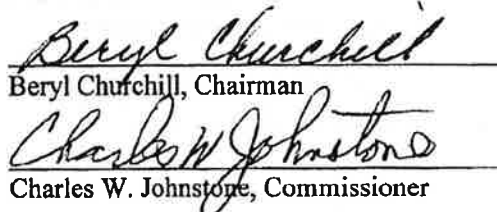 Beryl Churchill
Beryl Churchill, Chairman
Charles W Johnstone
Charles W. Johnstone, Commissioner